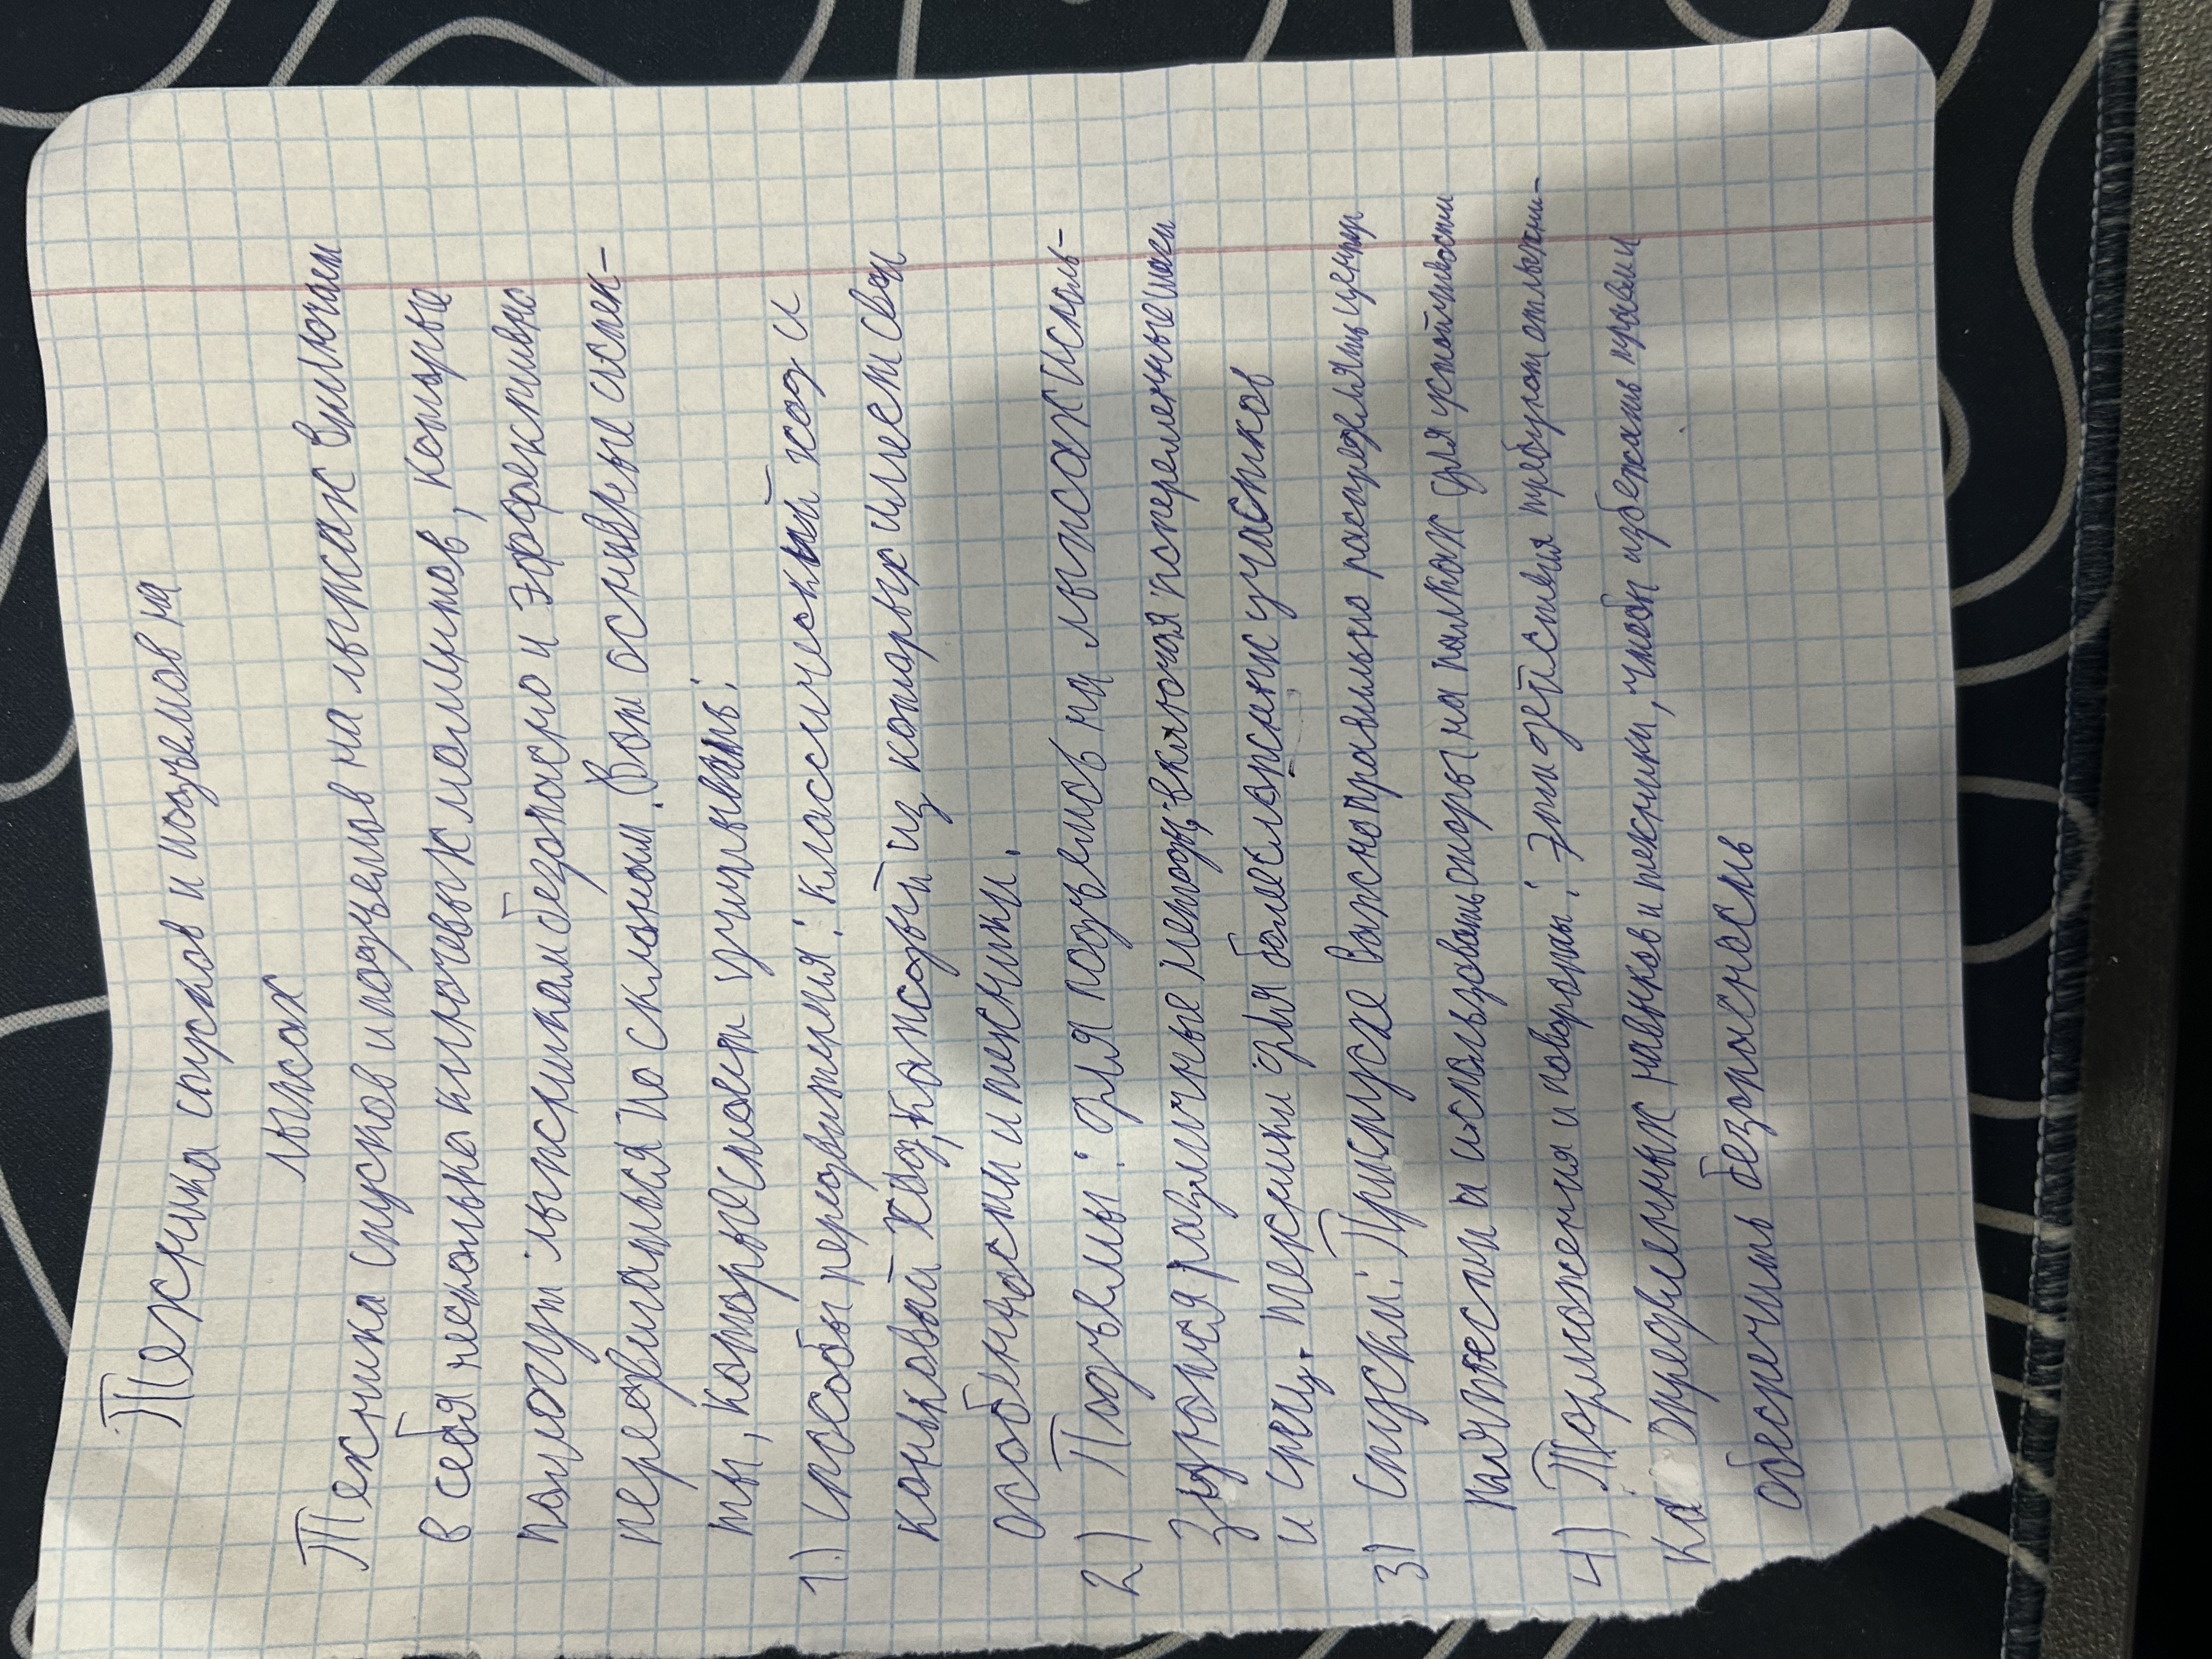 Техника спусков и подъемов на
лыжах
Техника спусков и подъемов на лыжах включает
в себя несколько ключевых моментов, которые
помогут лыжникам безопасно и эффективно
передвигаться по склонам. Вот основные аспек-
ты, которые стоит учитывать:
1) Способы передвижения: классический ход и
коньковый ход, каждый из которых имеет свои
особенности и техники.
2) Подъемы: для подъемов на лыжах исполь-
зуются различные методы, включая попеременные шаги
и спец. техники для более сложных участков
3) Спуски: При спуске важно правильно распределять центр
тяжести и использовать опоры на палках для устойчивости
4) Торможения и повороты: Эти действия требуют от лыжни-
ка определенных навыков и техники, чтобы избежать травм и
обеспечить безопасность